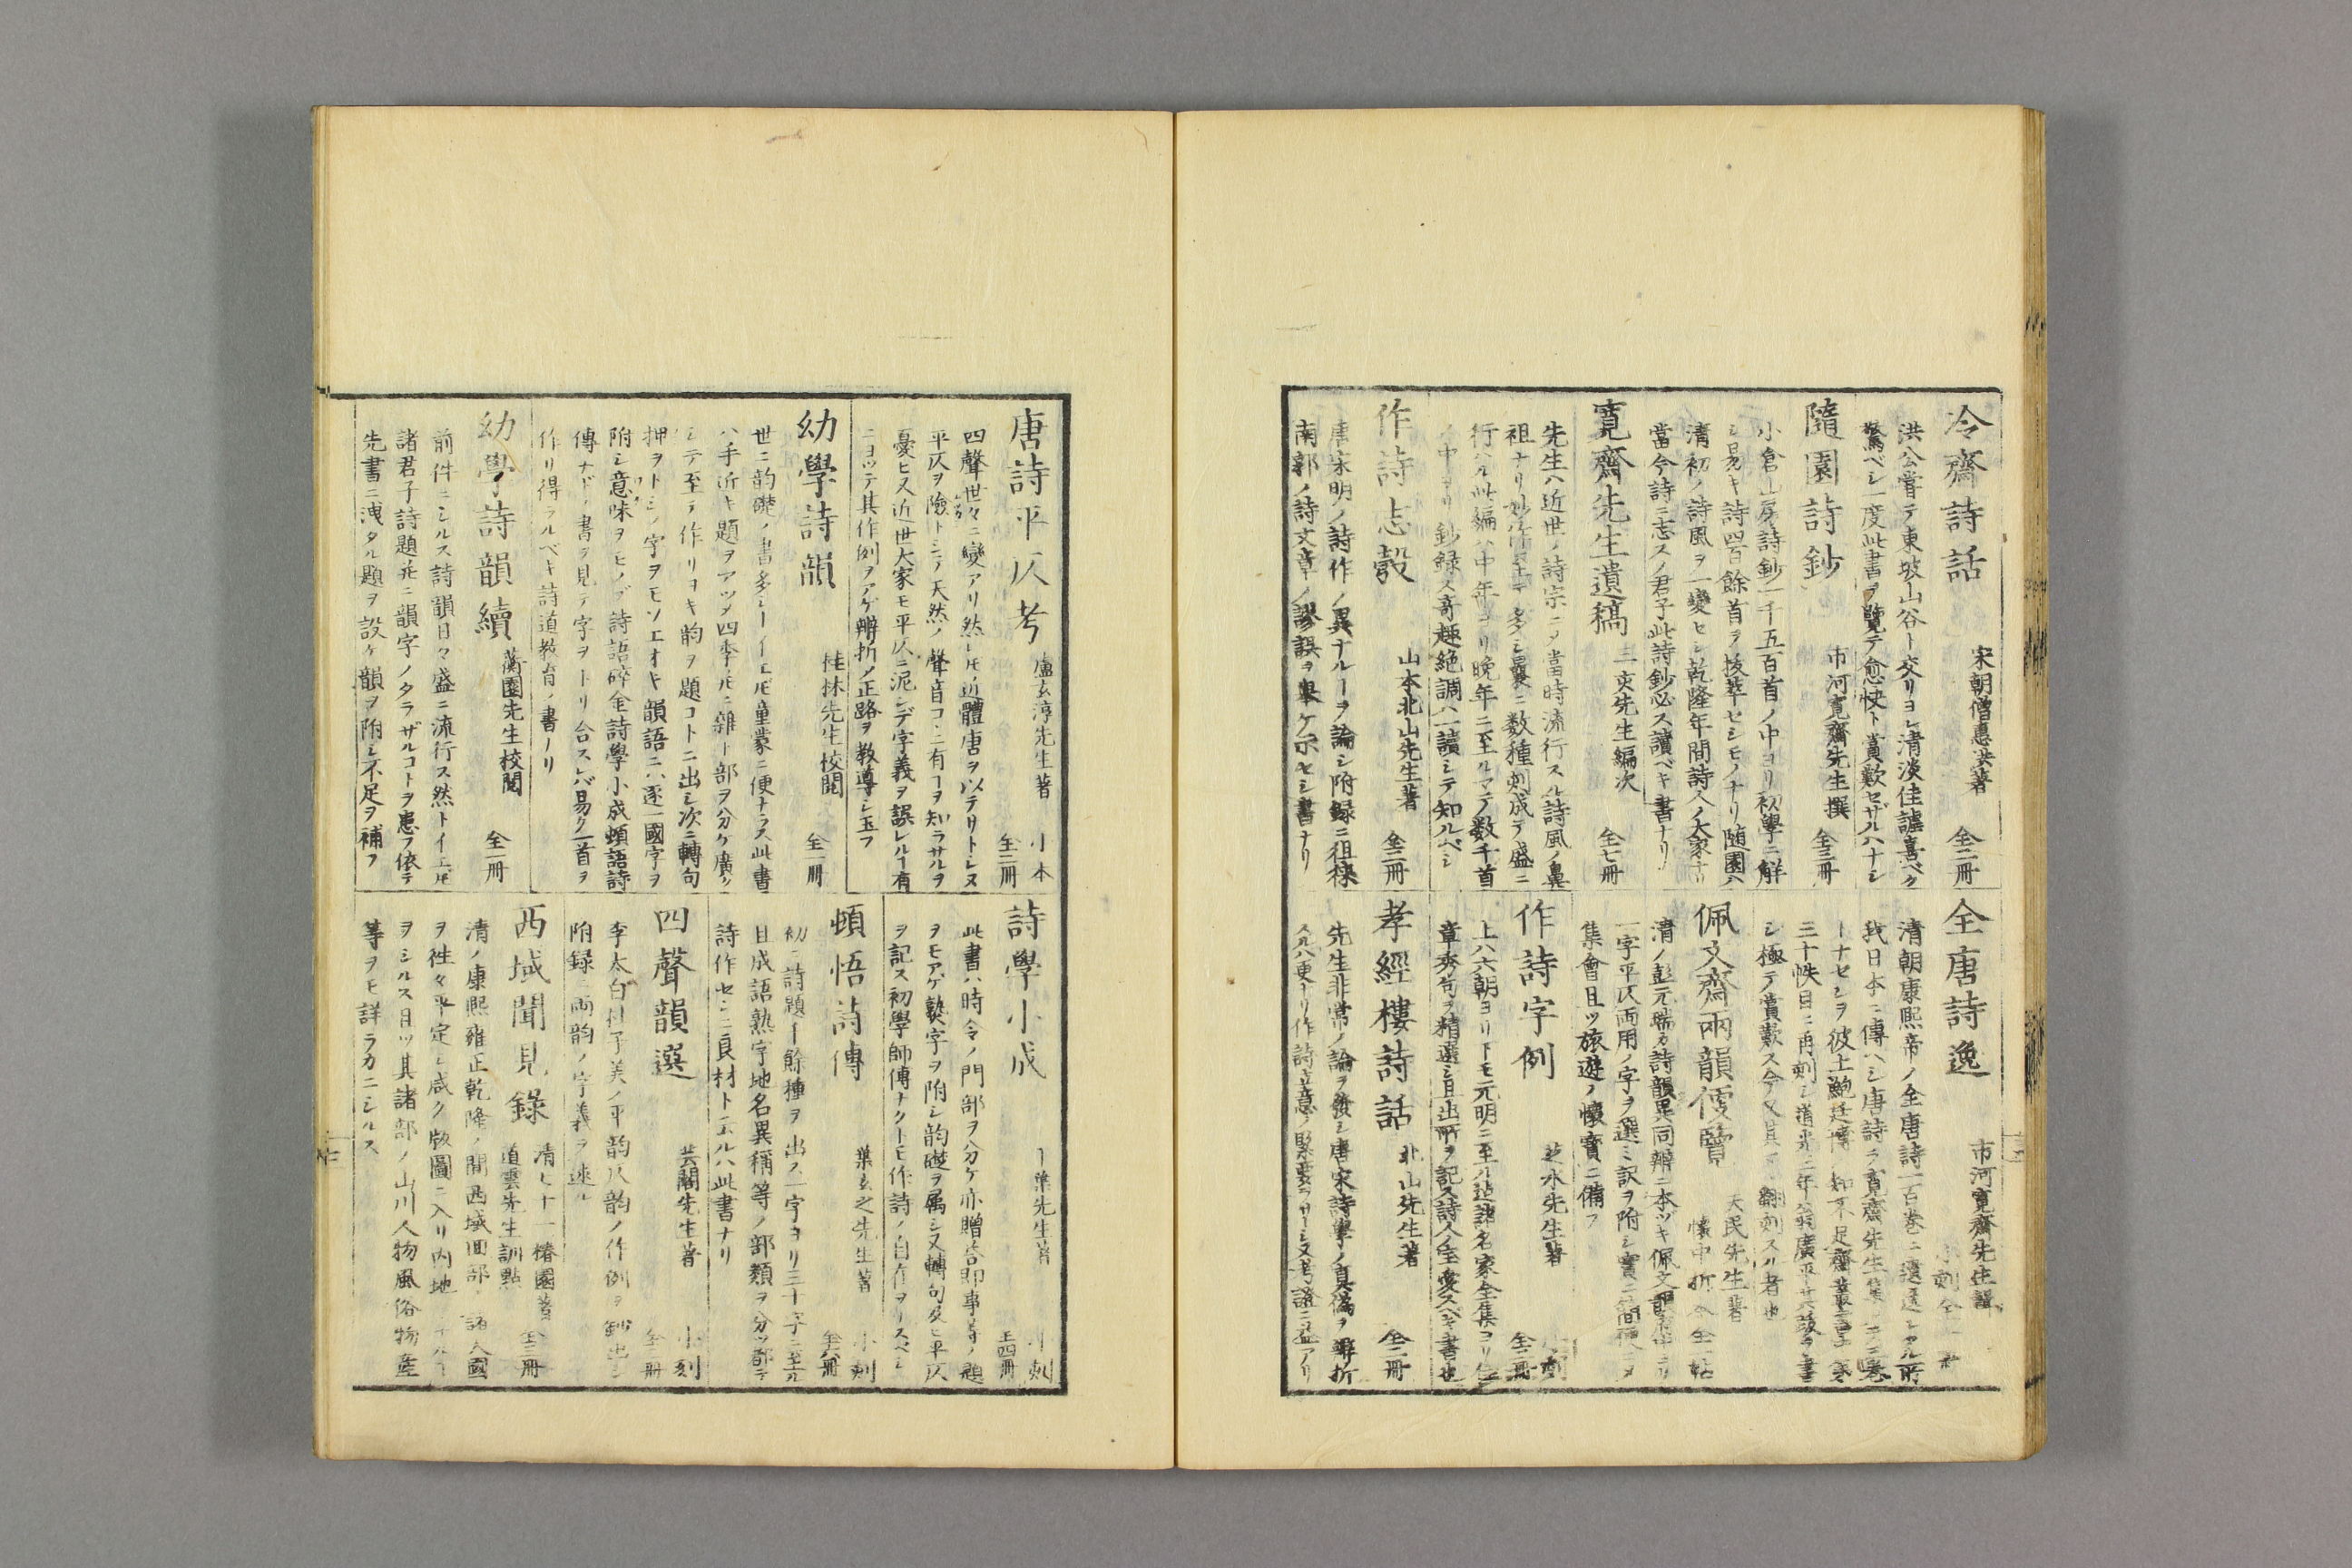 冷齋詩話
宋朝僧惠洪著
全二冊
洪公嘗テ東坡山谷ト交リヨシ清淡佳謔喜ベク
驚ベシ一度此書ヲ覽テ愈快ト賞歎セザルハナシ
隨園詩鈔
市河寬齋先生撰
全三冊
小倉山房詩鈔一千五百首ノ中ヨリ初學ニ解
シ易キ詩四百餘首ヲ抜萃セシモノナリ随園ハ
清初ノ詩風ヲ一變セシ乾隆年間詩人ノ大家ナリ
當今詩ニ志スノ君子此詩鈔必ス讀ベキ書ナリ
寬齋先生遺稿
三亥先生編次
全七冊
先生ハ近世ノ詩宗ニテ當時流行スル詩風ノ鼻
祖ナリ妙作至テ多シ曩ニ数種刻成テ盛ニ
行ハル此編ハ中年ヨリ晩年ニ至ルマデ数千首
ノ中ヨリ鈔録ス奇趣絶調ハ一讀シテ知ルベシ
作詩志彀
山本北山先生著
全二冊
唐宋明ノ詩作ノ異ナルヿヲ論シ附録ニ徂徠
南郭ノ詩文章ノ謬誤ヲ舉ケ示セシ書ナリ
全唐詩逸
市河寬齋先生輯
小刻全一冊
清朝康熙帝ノ全唐詩一百巻ニ遺逸シタル所
我日本ニ傳ハシ唐詩ヲ寬齋先生集
ナセシヲ彼土鮑廷博 知不足齋叢書
三十帙目ニ再刻シ道光三年翁廣平其跋ヲ書
シ極テ賞歎ス今又其 翻刻スル者也
佩文齋兩韻便覽
天民先生著
懷中折本全一帖
清ノ彭元瑞カ詩韻異同辨ニ本ヅキ佩文
一字平仄両用ノ字ヲ選ミ訳ヲ附シ實ニ簡便ニメ
集會且ツ旅遊ノ懷寶ニ備フ
作詩字例
芝水先生著
小刻
全二冊
上ハ六朝ヨリ下モ元明ニ至ル迠諸名家全集ヨリ
章秀句ヲ精選シ且出所ヲ記ス詩人ノ至愛スベキ書也
孝經樓詩話
北山先生著
全二冊
先生非常ノ論ヲ發シ唐宋詩學ノ真偽ヲ辨折
作詩立意ノ緊要 又考證ニ益アリ
唐詩平仄考
盧玄淳先生著
小本
全二冊
四聲世々ニ變アリ然レ𪜈近體唐ヲ以テサトシヌ
平仄ヲ險トシテ天然ノ聲音コヽニ有ヿヲ知ラサルヲ
憂ヒ又近世大家モ平仄ニ泥ンデ字義ヲ誤レルヿ有
ニヨツテ其作例ヲアゲ辨折ノ正路ヲ教導シ玉フ
幼學詩韻
桂林先生校閲
全一冊
世ニ韵礎ノ書多シーイエ𪜈童蒙ニ便ナラス此書
ハ手近キ題ヲアツメ四季𪜈ニ雜ト部ヲ分ケ廣ク
シテ至テ作リヨキ韵ヲ題コトニ出シ次ニ轉句
押ヲトシノ字ヲモソエオキ韻語ニハ逐一國字ヲ
附シ意味ヲモノブ詩語碎金詩學小成頓語詩
傳ナドノ書ヲ見テ字ヲトリ合スレバ易ク一首ヲ
作リ得ラルベキ詩道教育ノ書ナリ
幼學詩韻續
蘐園先生校閲
全一冊
前件ニシルス詩韻日々盛ニ流行ス然トイエ𪜈
諸君子詩題并ニ韻字ノタラザルコトヲ患フ依テ
先書ニ洩タル題ヲ設ケ韻ヲ附シ不足ヲ補フ
詩學小成
葉先生著
小刻
全四冊
此書ハ時令ノ門部ヲ分ケ亦贈答即事等ノ題
ヲモアゲ熟字ヲ附シ韵礎ヲ属シ又轉句及ヒ平仄
ヲ記ス初學師傳ナクトモ作詩ノ自在ヲリスベシ
頓悟詩傳
葉玄之先生著
小刻
全六冊
初ニ詩題十餘種ヲ出ス一字ヨリ三十字ニ至ル
且成語熟字地名異稱等ノ部類ヲ分ツ都テ
詩作センニ良材トナルハ此書ナリ
四聲韻選
芸閣先生著
小刻
全一冊
李太白杜子美ノ平韵仄韵ノ作例ヲ鈔出シ
附録ニ両韵ノ字義ヲ述ル
西域聞見錄
清七十一椿園著
道雲先生訓點
全三冊
清ノ康熙雍正乾隆ノ間西域回部 諸大國
ヲ徃々平定シ咸ク版圖ニ入リ内地
ヲシルス且ツ其諸部ノ山川人物風俗物産
等ヲモ詳ラカニシルス